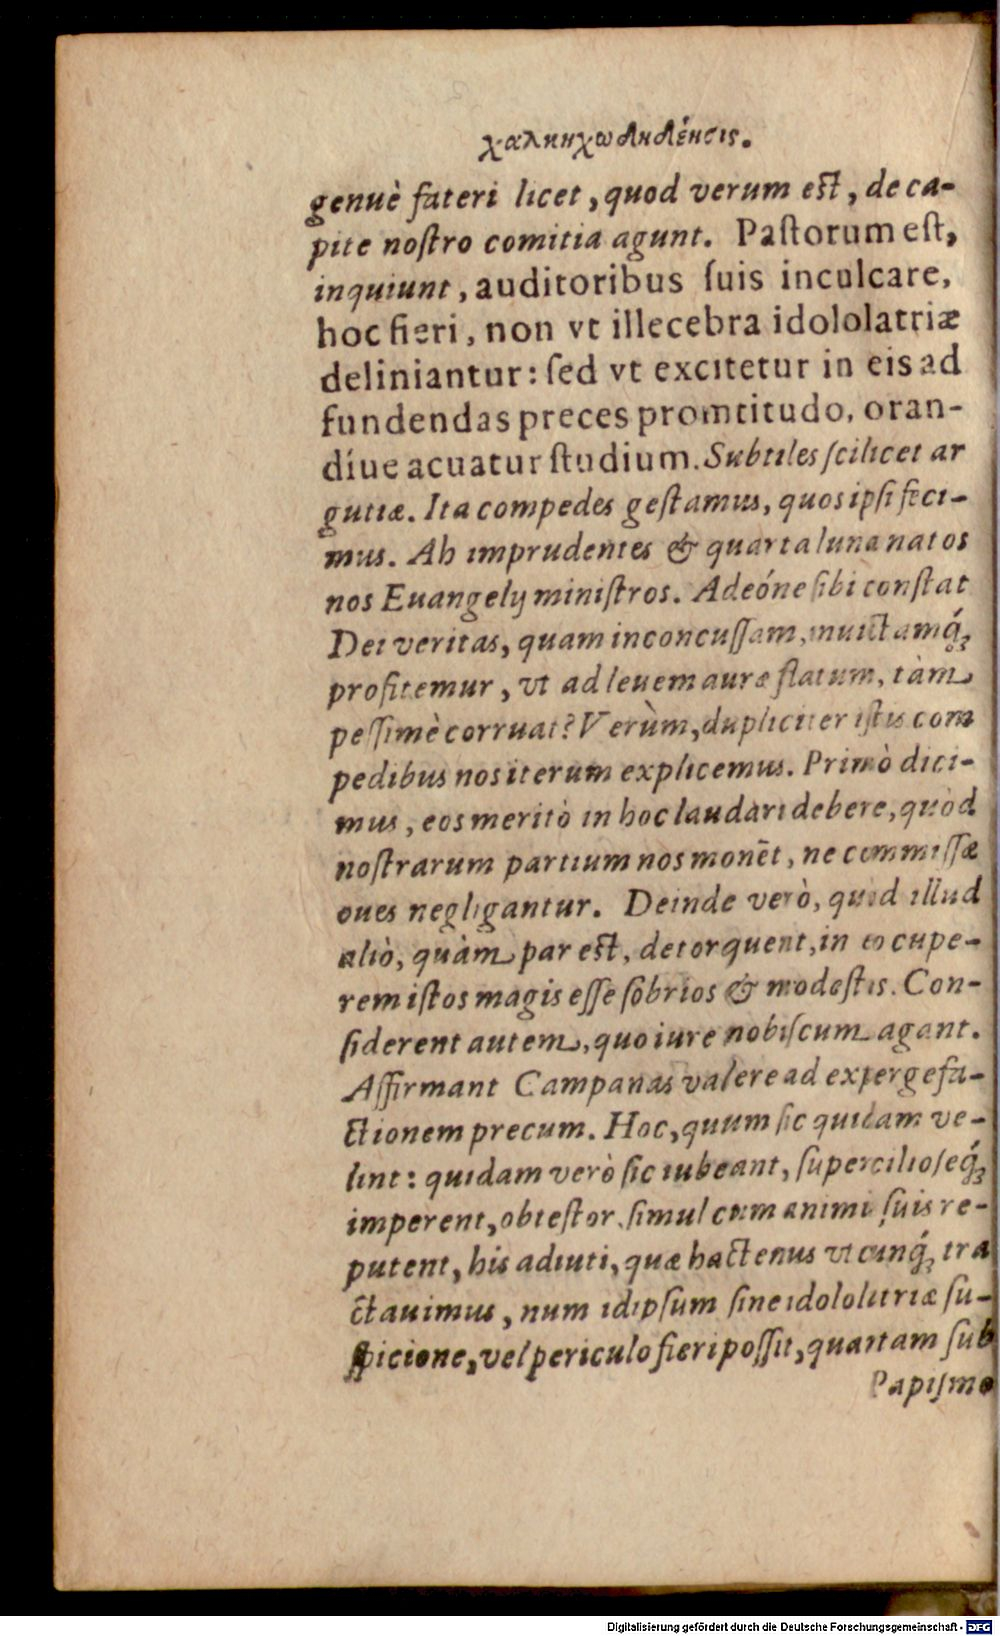 genuè fateri licet, quod verum est, de ca-
pite noſtro comitia agunt. Paſtorum eſt,
inquiunt, auditoribus ſuis inculcare,
hoc fieri, non vt illecebra idololatriæ
deliniantur: ſed vt excitetur in eis ad
fundendas preces promtitudo, oran-
díue acuatur ſtudium. Subtiles ſcilicet ar
gutiæ. Ita compedes geſtamus, quos ipſi feci-
mus. Ah imprudentes & quarta luna natos
nos Euangelij miniſtros. Adeóne ſibi conſtat
Dei veritas, quam inconcuſſam, inuictamq́;
profitemur, vt ad leuem auræ flatum, tàm
peſſimè corruat? Verùm, dupliciter iſtis com
pedibus nos iterum explicemus. Primò dici-
mus, eos meritò in hoc laudari debere, quòd
noſtrarum partium nos monēt, ne commiſſæ
oues negligantur. Deinde verò, quòd illud
aliò, quàm par est, detorquent, in eo cupe-
rem iſtos magis eſſe ſobrios & modeſtis. Con-
ſiderent autem, quo iure nobiſcum agant.
Aſſirmant Campanas valere ad expergefa-
ctionem precum. Hoc, quum ſic quidam ve-
lint: quidam verò ſic iubeant, ſupercilioſeq́;
imperent, obteſtor, ſimul cum animi ſuis re-
putent, his adiuti, quæ hactenus vtcunq́; tra
ctauimus, num idipſum ſine idololatriæ ſu-
ſpicione, vel periculo fieri poſſit, quartam ſub
Papiſmo
Digitalisierung gefördert durch die Deutsche Forschungsgemeinschaft - DFG